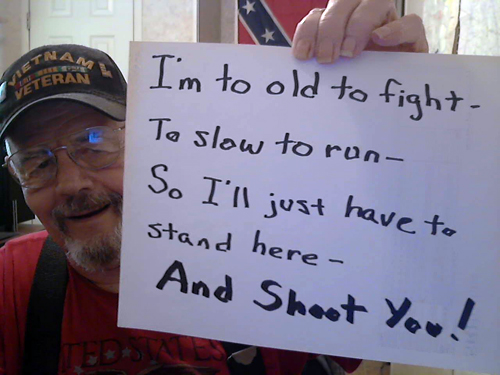 VIETNAM
VETERAN
I'm to old to fight-
To slow to run-
So I'll just have to
stand here-
And Shoot You!
TED STATES